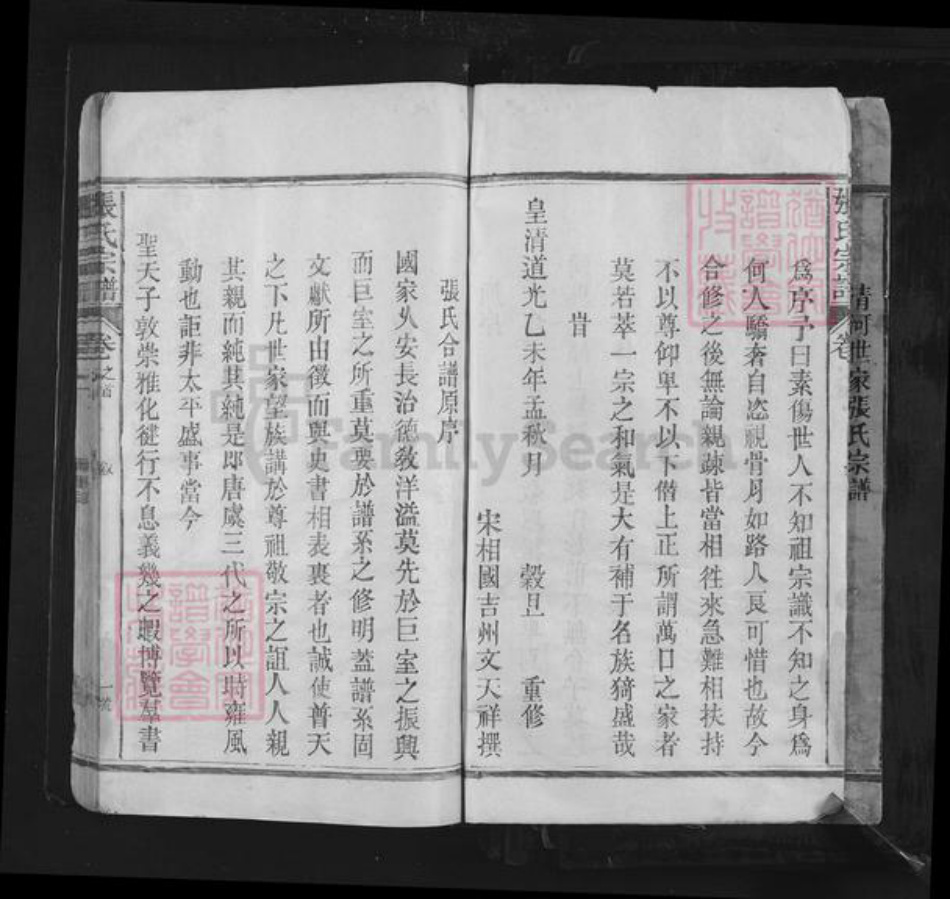 清河世家張氏宗譜
張氏宗譜 卷
爲序予曰素傷世人不知祖宗識不知之身爲
何人驕奢自恣視骨肉如路人良可惜也故今
合修之後無論親疎皆當相徃來急難相扶持
不以尊仰卑不以下僭上正所謂萬口之家者
莫若萃一宗之和氣是大有補于名族猗盛哉
旹
皇清道光乙未年孟秋月 穀旦 重修
宋相國吉州文天祥撰
張氏合譜原序
國家久安長治德敎洋溢莫先於巨室之振興
而巨室之所重莫要於譜系之修明蓋譜系固
文獻所由徵而與史書相表裏者也誠使普天
之下凡世家望族講於尊祖敬宗之誼人人親
其親而純其純是即唐虞三代之所以時雍風
動也詎非太平盛事當今
聖天子敦崇雅化健行不息義幾之暇博覽羣書
張氏宗譜 卷之首
FamilySearch